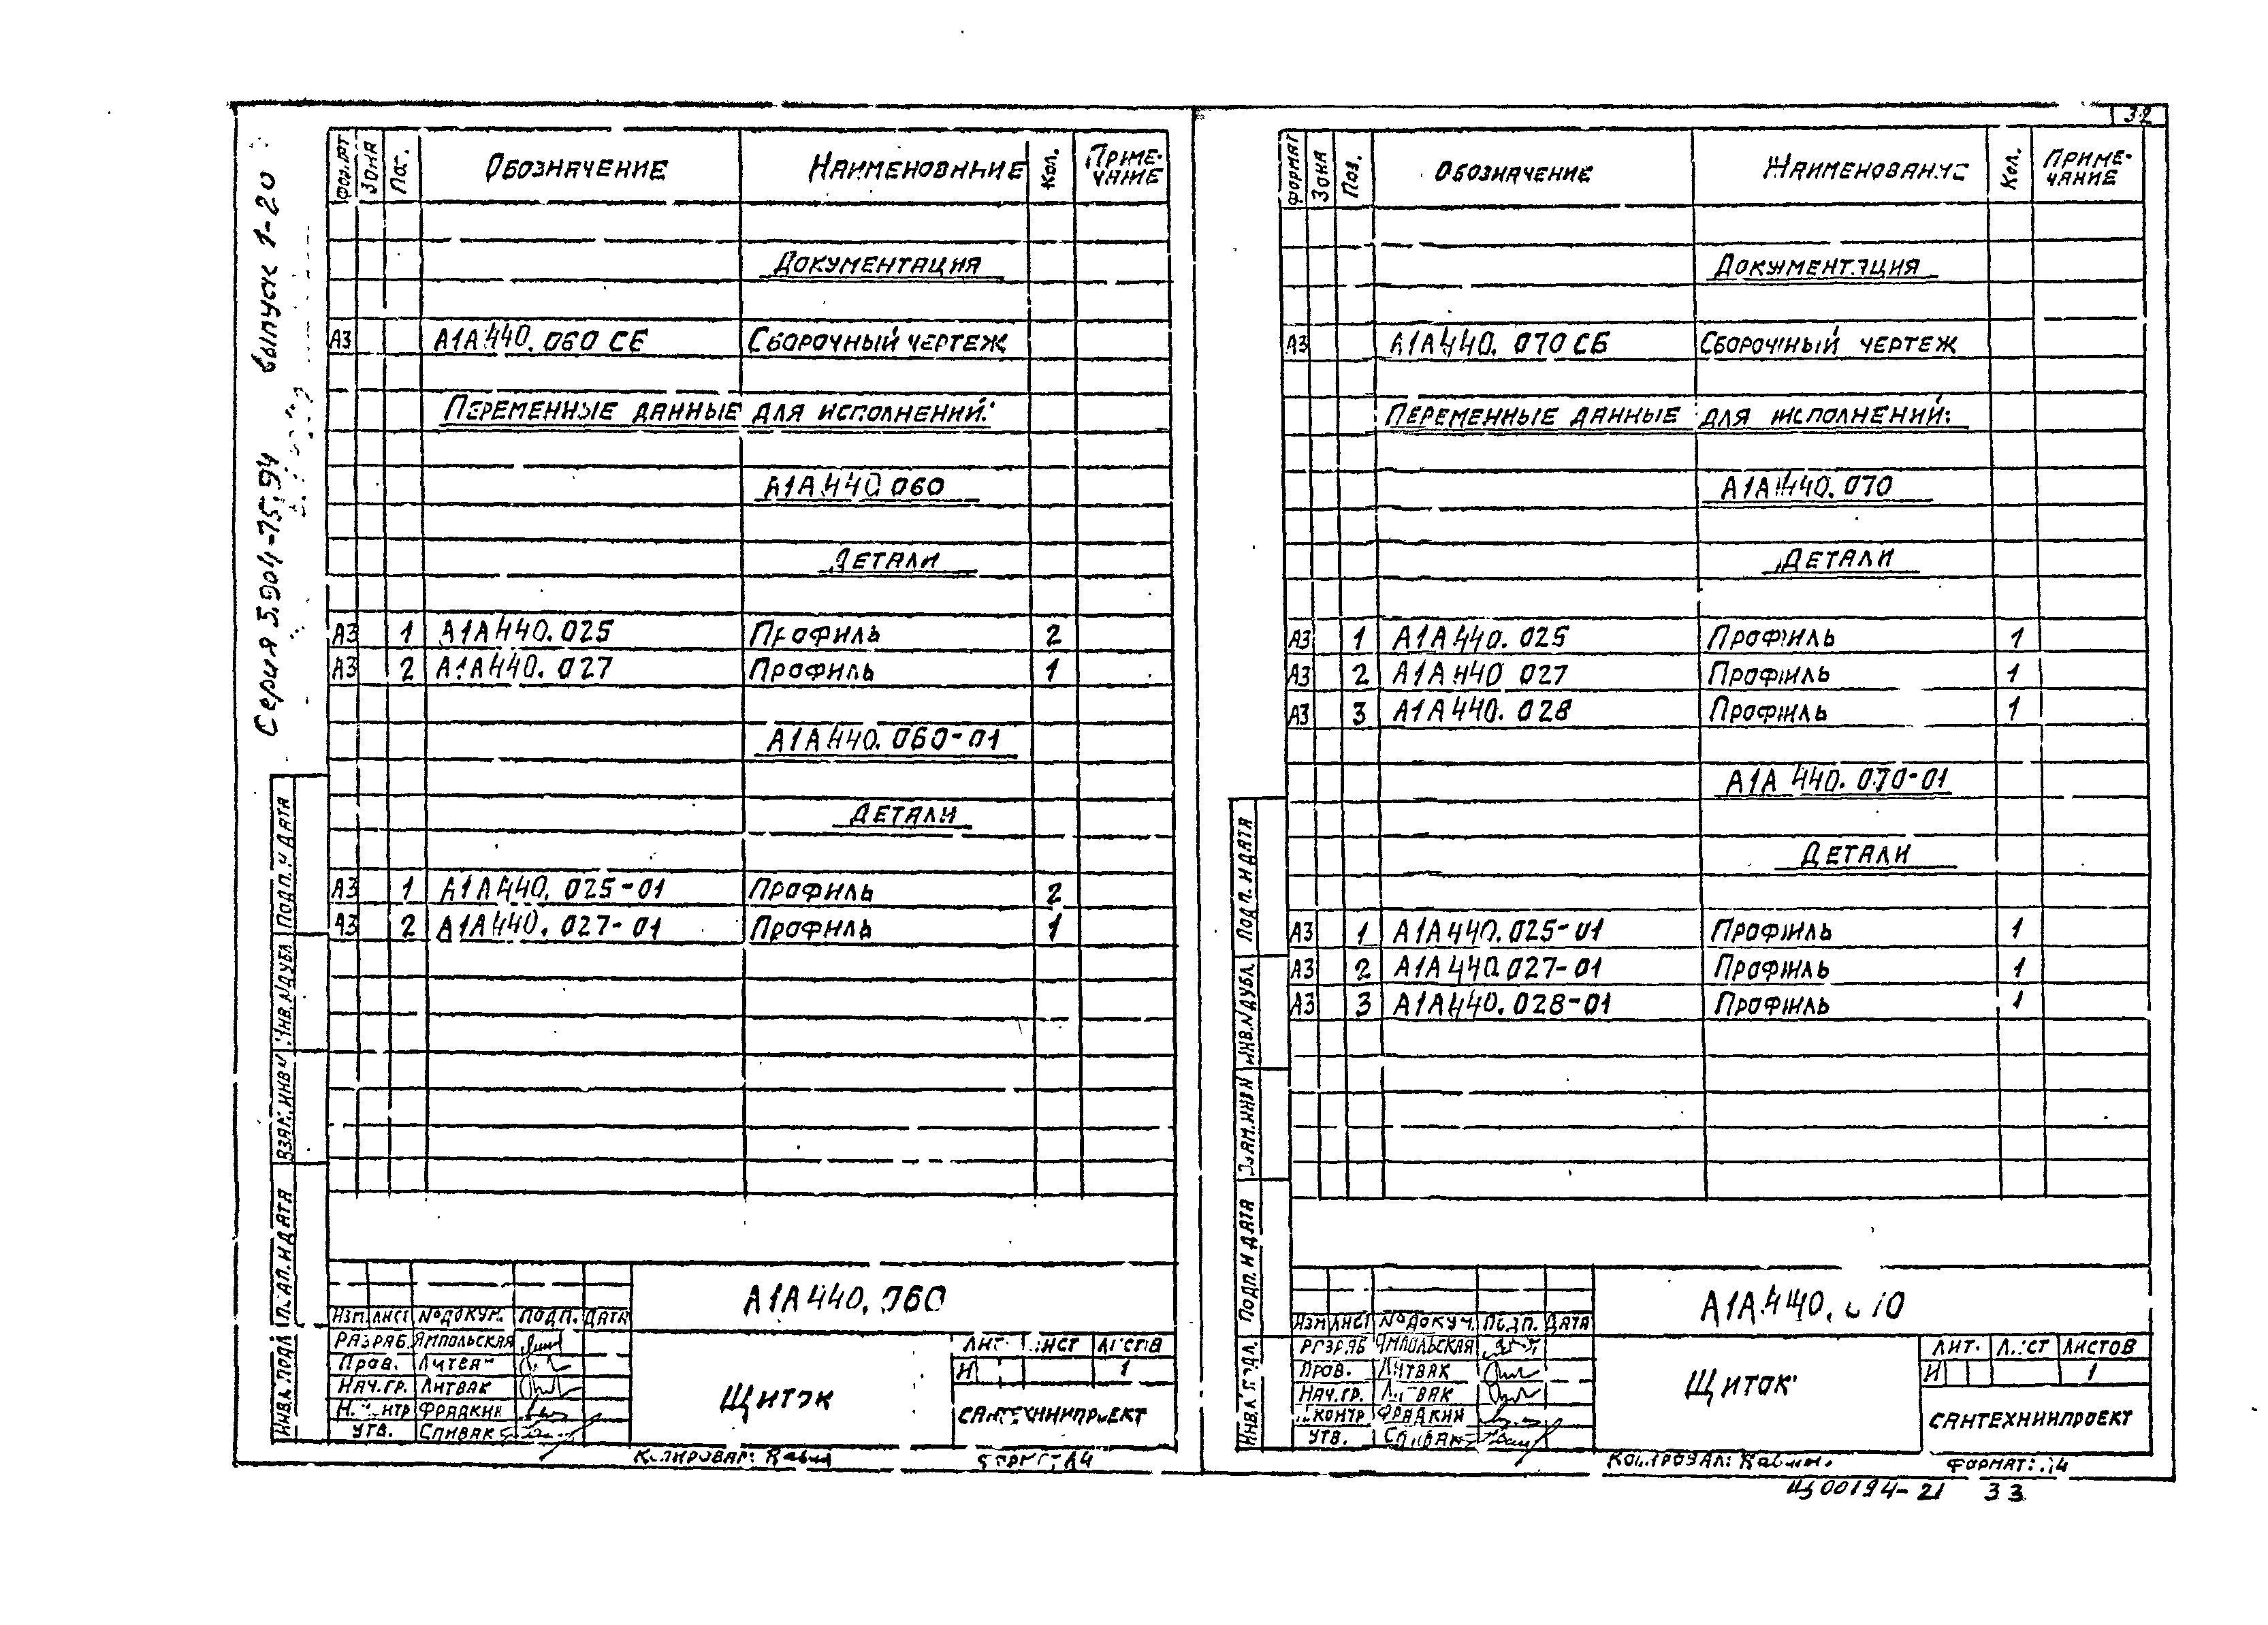 32
Серия 5.904-75.94 выпуск 1-20
Формат Зона Поз. Обозначение Наименование Кол. Примечание
Документация
А3 А1А440.060 СБ Сборочный чертеж
Переменные данные для исполнений:
А1А440.060
Детали
А3 1 А1А440.025 Профиль 2
А3 2 А1А440.027 Профиль 1
А1А440.060-01
Детали
А3 1 А1А440.025-01 Профиль 2
А3 2 А1А440.027-01 Профиль 1
Инв.№ подл. Подп. и дата Взам. инв № Инв.№ дубл. Подп. и дата
А1А440.060
Изм Лист № докум. Подп. Дата
Разраб. Ямпольская
Пров. Литвак
Нач.гр. Литвак
Н.контр Фрадкин
Утв. Спивак
Щиток
Лит. Лист Листов
И 1
Сантехниипроект
Копировал:
Формат: А4
Формат Зона Поз. Обозначение Наименование Кол. Примечание
Документация
А3 А1А440.070 СБ Сборочный чертеж
Переменные данные для исполнений:
А1А440.070
Детали
А3 1 А1А440.025 Профиль 1
А3 2 А1А440 027 Профиль 1
А3 3 А1А440.028 Профиль 1
А1А 440.070-01
Детали
А3 1 А1А440.025-01 Профиль 1
А3 2 А1А440.027-01 Профиль 1
А3 3 А1А440.028-01 Профиль 1
Инв.№ подл. Подп. и дата Взам. инв № Инв.№ дубл. Подп. и дата
А1А440.070
Изм Лист № докум. Подп. Дата
Разраб Ямпольская
Пров. Литвак
Нач.гр. Литвак
Н.контр Фрадкин
Утв. Спивак
Щиток
Лит. Лист Листов
И 1
Сантехниипроект
Копировал:
Формат: А4
Ц00194-21 33